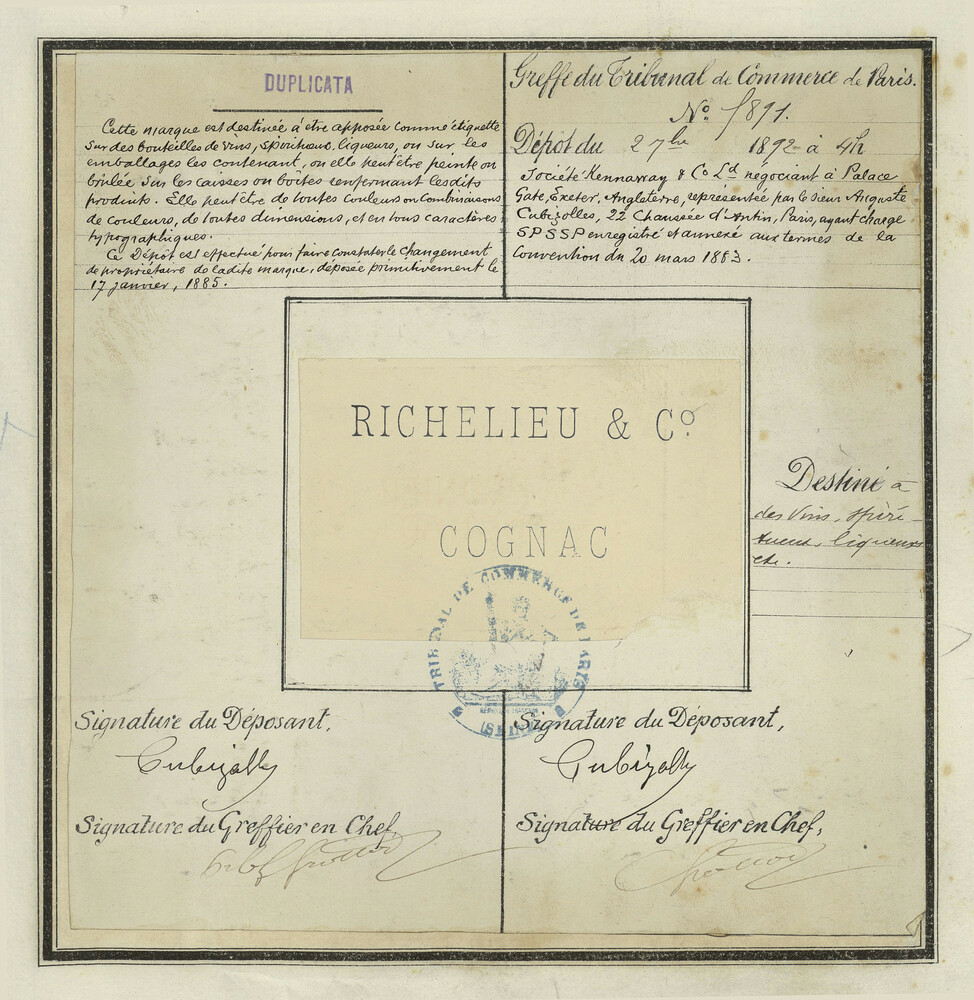 DUPLICATA
Cette marque est destinée à être apposée comme étiquette
sur des bouteilles de vins, spiritueux, liqueurs, ou sur les
emballages les contenant, ou elle peut être peinte ou
brûlée sur les caisses ou boîtes renfermant lesdits
produits. Elle peut être de toutes couleurs ou combinaisons
de couleurs, de toutes dimensions, et en tous caractères
typographiques.
Ce Dépôt est effectué pour faire constater le Changement
de propriétaire de ladite marque, déposée primitivement le
17 janvier, 1885.
Greffe du Tribunal de Commerce de Paris.
Nº 1891.
Dépôt du 2 7bre 1892 à 4h
Société Kennaway & Co Ld négociant à Palace
Gate, Exeter, Angleterre, représentée par le Sieur Auguste
Cubizolles, 22 Chaussée d'Antin, Paris, ayant charge
SPSSP enregistré et annexé aux termes de la
Convention du 20 mars 1883.
RICHELIEU & Cº.
COGNAC
Destiné à
des Vins, spiri-
tueux, liqueurs
etc.
TRIBUNAL DE COMMERCE DE PARIS
(SEINE)
Signature du Déposant,
Cubizolles
Signature du Greffier en Chef,
Signature du Déposant,
Cubizolles
Signature du Greffier en Chef,